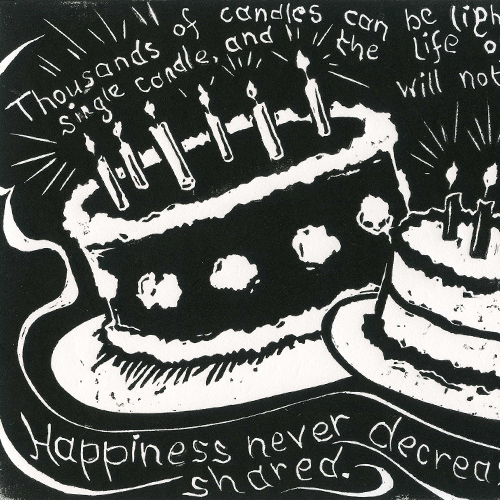 Thousands of candles can be ligh
single candle, and the life o
will not
Happiness never decrea
shared.